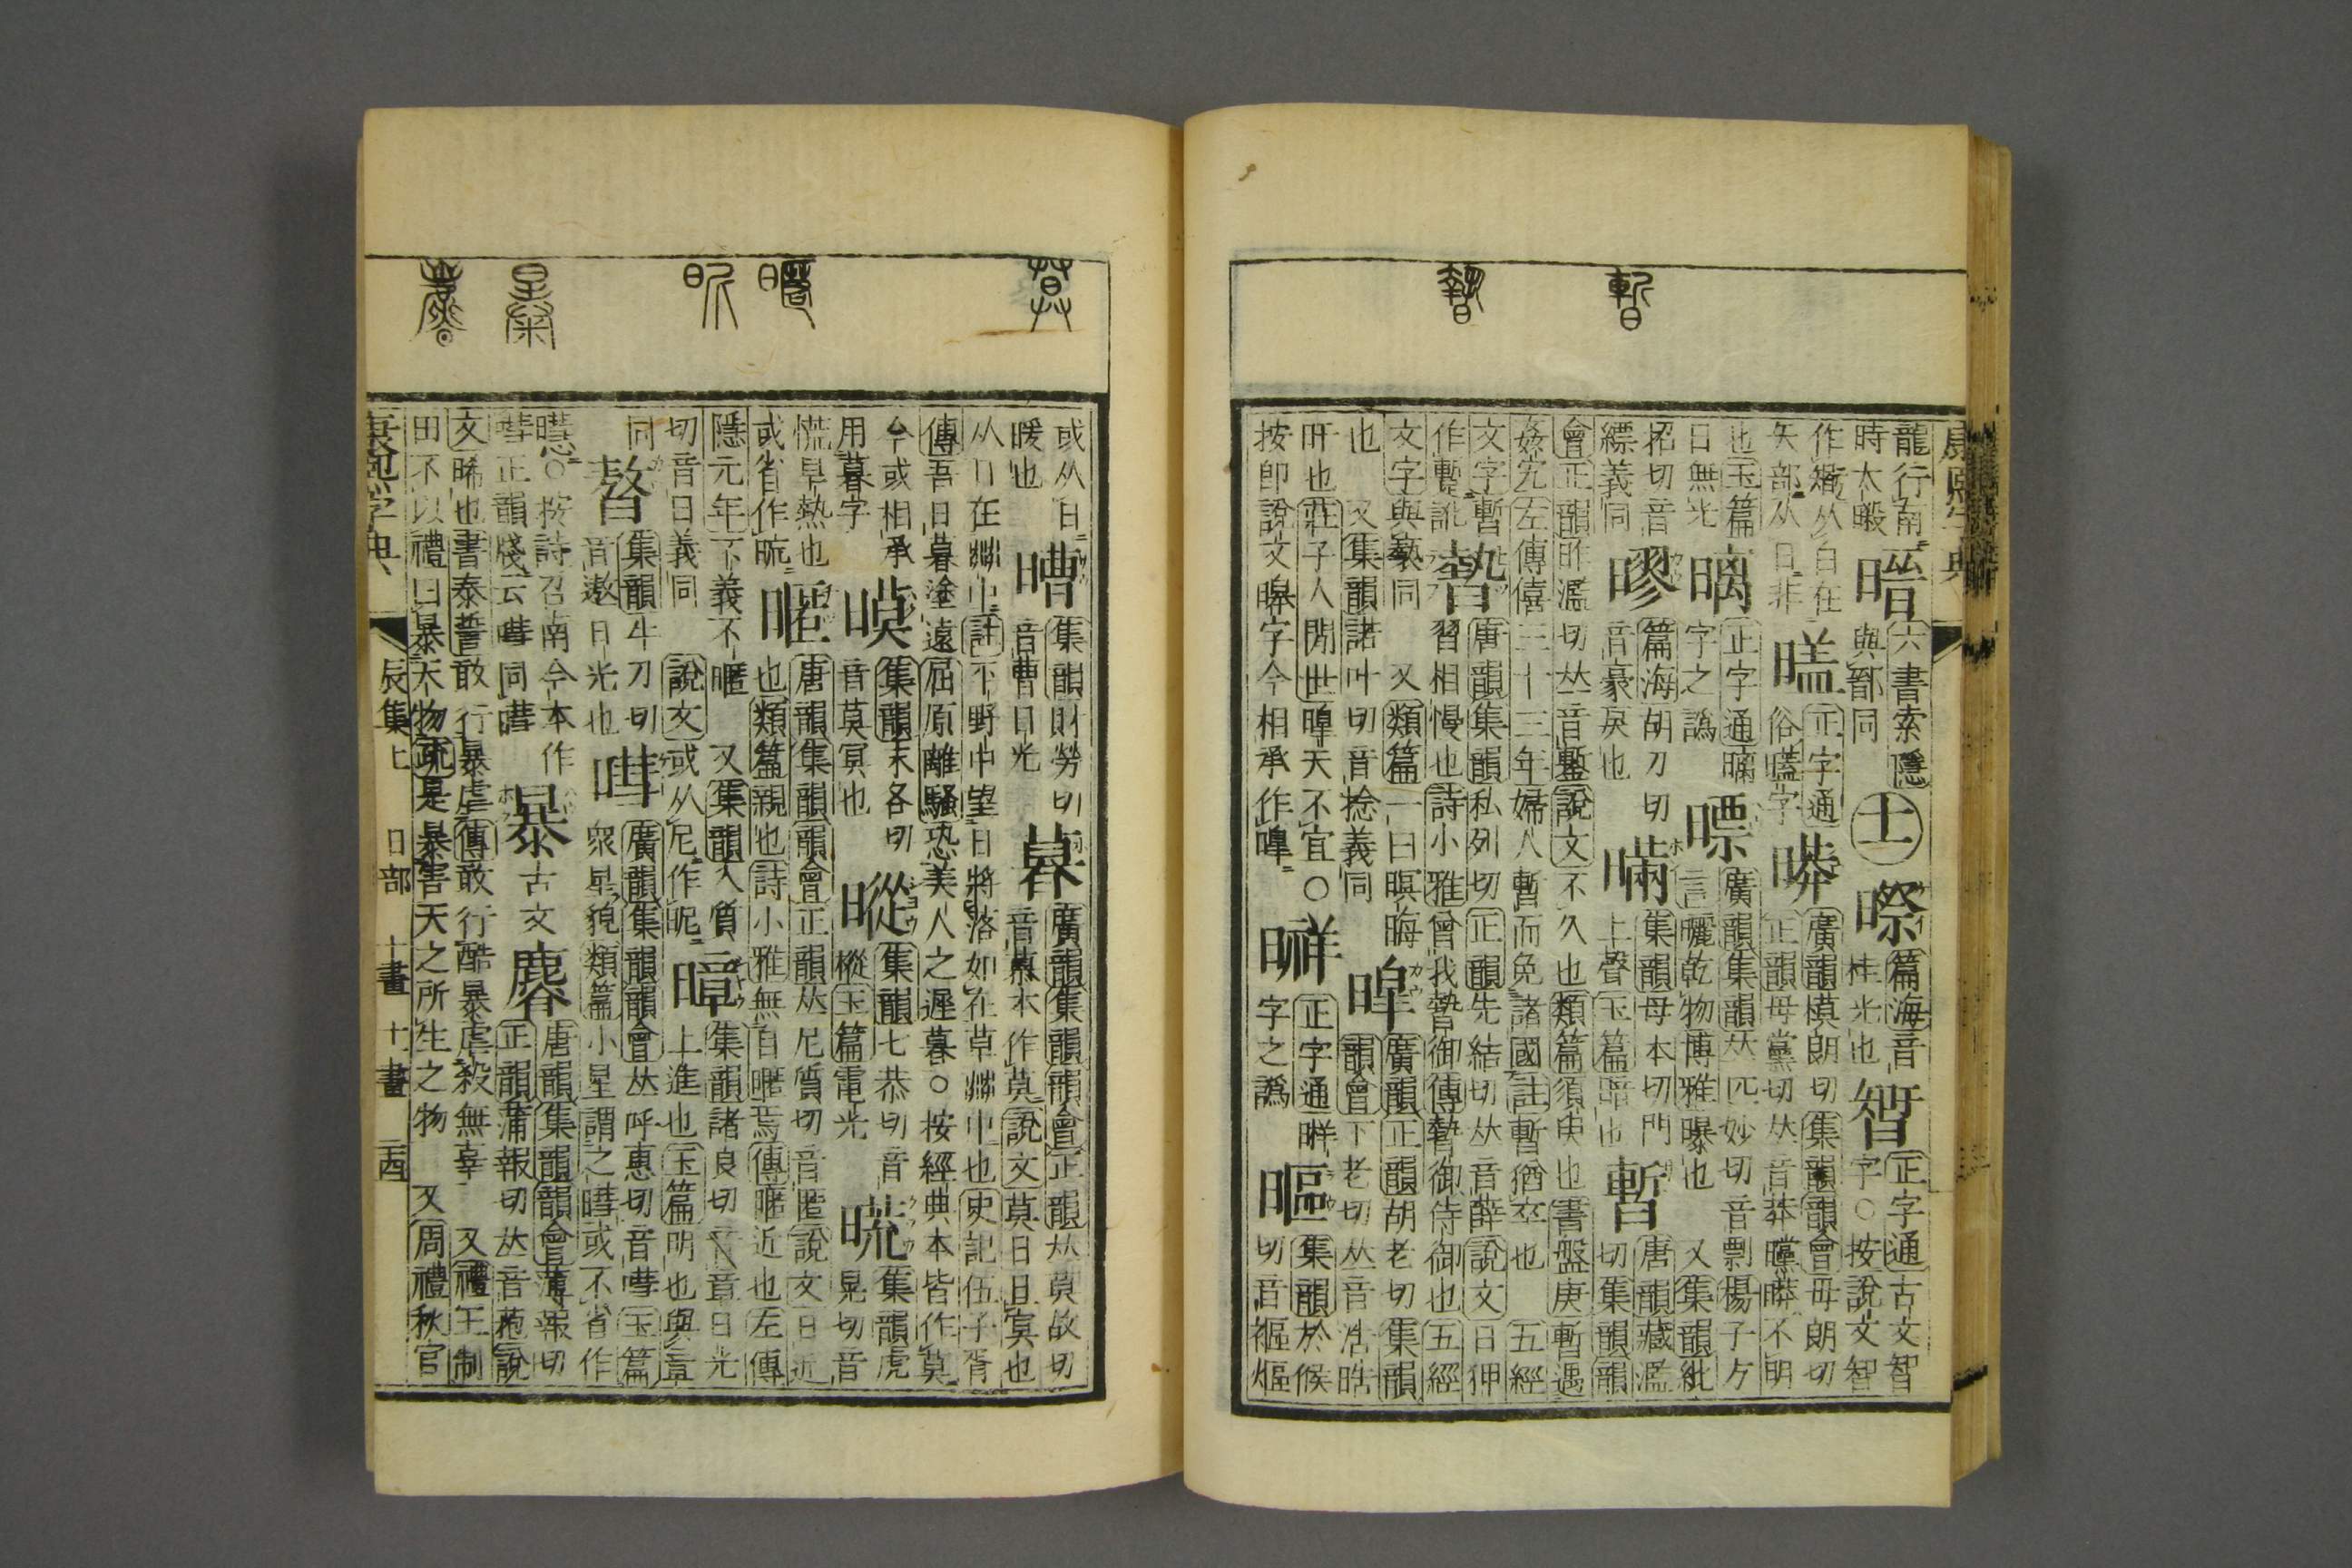 龍行南時太暇 六書索隱與鄑同 ㊏ 暩 篇海音桂光也 正字通古文智字○按說文智
作𥏼从白在矢部从日非 正字通俗 字 㬒 廣韻模朗切正韻母黨切𠀤音莽曭㬒不明 集韻韻會毋朗切
也玉篇日無光 正字通 字之譌 㬓 廣韻集韻𠀤匹妙切音剽揚子方言曬乾物博雅曝也 又集韻紕
招切音縹義同 篇海胡刀切音豪戾也 暪 集韻母本切門上聲玉篇暗也 暫 唐韻藏濫切集韻韻
會正韻昨濫切𠀤音鏨說文不久也類篇須臾也書盤庚暫遇姦宄左傳僖三十三年婦人暫而免諸國註暫猶卒也 五經
文字暫作蹔訛 暬 唐韻集韻私列切正韻先結切𠀤音薛說文日狎習相慢也詩小雅曾我暬御傳暬御侍御也五經
文字與褻同 又類篇一曰暝晦也 又集韻諾叶切音捻義同 暤 廣韻正韻胡老切集韻韻會下老切𠀤音浩晧
旰也莊子人閒世暤天不宜○按卽說文暤字今相承作暤 正字通 字之譌 㬂 集韻於候切音
或从日 暖也 㬖 集韻財勞切音曹日光 暮 廣韻集韻韻會正韻𠀤莫故切音慕本作莫說文莫日且冥也
从日在茻中註平野中望日將落如在草茻中也史記伍子胥傳吾日暮塗遠屈原離騷恐美人之遲暮○按經典本皆作莫
今或相承用暮字 暯 集韻末各切音莫冥也 暰 集韻七恭切音樅玉篇電光 集韻虎晃切音
慌旱熱也或省作㫛 暱 唐韻集韻韻會正韻𠀤尼質切音昵說文日近也類篇親也詩小雅無自暱焉傳暱近也左傳
隱元年不義不暱 又集韻入質切音日義同 說文或从尼作昵 暲 集韻諸良切音章日光上進也玉篇明也與章
同 集韻牛刀切音遨日光也 嘒 廣韻集韻韻會𠀤呼惠切音嘒玉篇衆星貌類篇小星謂之 或不省作
○按詩召南今本作嘒正韻牋云 同 暴 古文 唐韻集韻韻會薄報切正韻蒲報切𠀤音菢說
文晞也書泰誓敢行暴虐傳敢行酷暴虐殺無辜 又禮王制田不以禮曰暴天物疏是暴害天之所生之物 又周禮秋官
康熙字典 辰集上 日部 十畫 十一畫